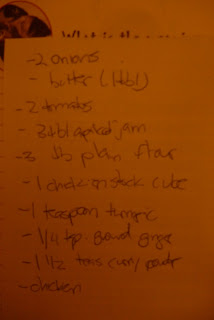 What is the
- 2 onions
- butter (1 tbl)
- 2 tomatos
- 3 tbl apricot jam
- 3 tb plain flour
- 1 chicken stock cube
- 1 teaspoon tumeric
- 1/4 tsp. ground ginger
- 1 1/2 curry powder
- chicken